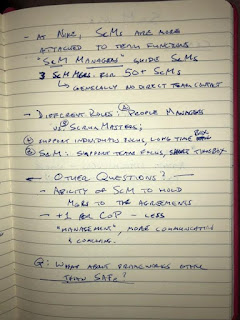 - AT NIKE, ScMs ARE MORE
ATTACHED TO TEAM FUNCTIONS
"ScM MANAGERS" GUIDE ScMs
3 ScM MGRS. FOR 50+ ScMs
↳ GENERALLY NO DIRECT TEAM CONTACT
- DIFFERENT ROLES: ⓐ PEOPLE MANAGERS
VS ⓑ SCRUMMASTERS;
ⓐ SUPPORT INDIVIDUALS FOCUS, LONG TIME BOX
ⓑ ScM: SUPPORT TEAM FOCUS, SHORT TIMEBOX
- OTHER QUESTIONS?
- ABILITY OF ScM TO HOLD
MGRS TO THE AGREEMENTS
- +1 FOR CoP - LESS
"MANAGEMENT", MORE COMMUNICATION
& COACHING.
Q: WHAT ABOUT FRAMEWORKS OTHER
THAN SAFe?